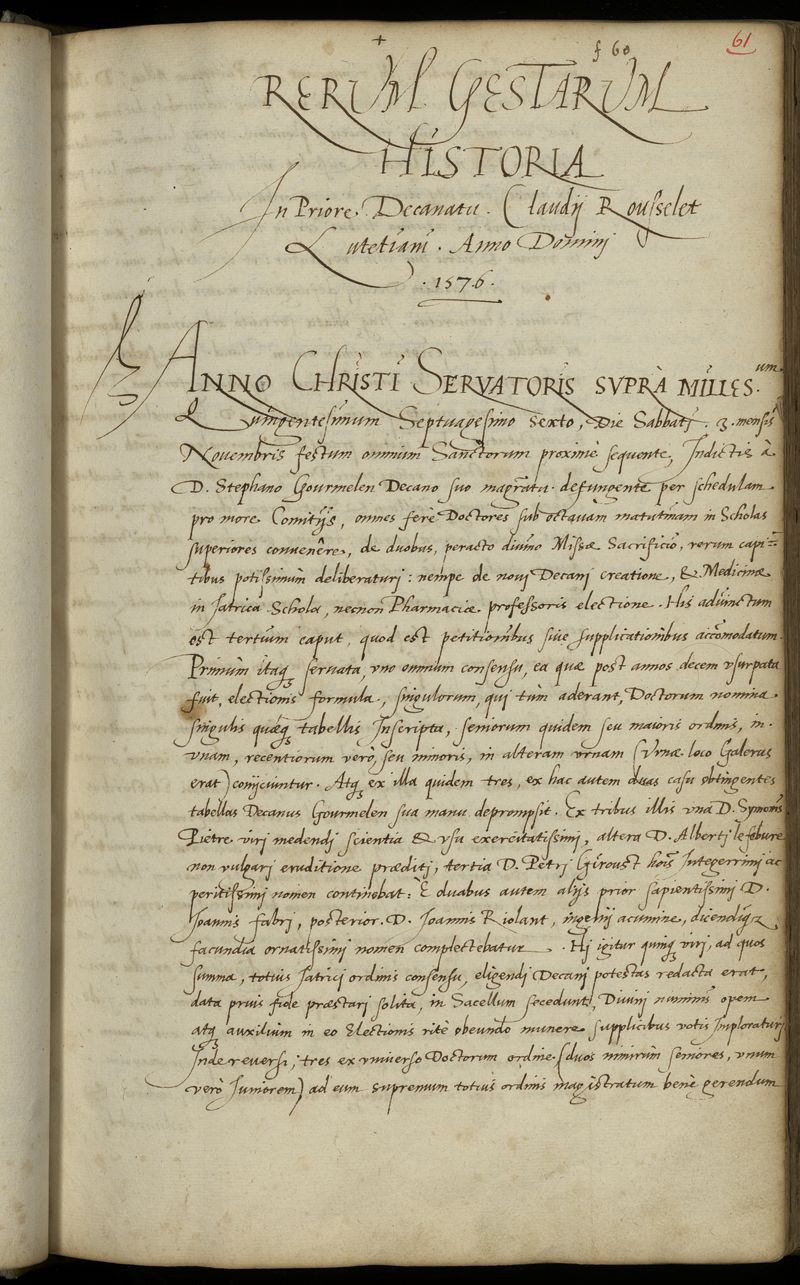 f 60
61
RERUM GESTARUM
HISTORIA
In Priore Decanatu. Claudij Rousselet
Lutetiani. Anno Domini
.1576.
ANNO CHRISTI SERVATORIS SVPRÀ MILLES.um
Quingentesimum Septuagesimo sexto, Die Sabbati. 3. mensis
Novembris festum omnium Sanctorum proximè sequente, Indictis à
D. Stephano Gourmelen Decano suo magratu. defungente per schedulam
pro more Comitijs, omnes ferè Doctores sub octavam matutinam in Scholas
superiores convenêre, de duobus, peracto divino Missæ Sacrificio, rerum capi=
tibus potissimùm deliberaturj: nempe de novi Decanj creatione, & Medicinæ
in Iatrica Schola, necnon Pharmaciæ professoris electione. His adiunctum
est tertium caput, quod est petitionibus siue supplicationibus accõmodatum.
Primùm itaq; servata, vno omnium consensu, ea quæ post annos decem vsurpata
fuit, electionis formula, singulorum, qui tùm aderant, Doctorum nomina
singulis quæq; tabellis Inscripta, seniorum quidem seu maioris ordinis, in
vnam, recentiorum verò, seu minoris, in alteram vrnam (Vrnæ loco Galerus
erat) conijciuntur. Atq; ex illa quidem tres, ex hac autem duas casu obtingentes
tabellas Decanus Gourmelen sua manu deprompsit. Ex tribus illis vna D. Symonis
Piètre viri medendj scientia & vsu exercitatissimj, altera D. Albertj le febure
non vulgari eruditione præditj, tertia D. Petrj Giroust hois Integerrimj ac
peritissimj nomen continebat: E duabus autem alijs prior sapientissimj D.
Ioannis fabrj, posterior. D. Ioannis Riolant, ingenij acumine, dicendiq;
facundia ornatissimj nomen complectebatur. Hj igitur quinq; virj, ad quos
summa, totius Iatricj ordinis consensu, eligendj Decanj potestas redacta erat,
data prius fide præstari solita, in Sacellum secedunt, Divinj numinis opem
atq; auxilium in eo Electionis ritè obeundo munere supplicibus votis Imploraturj
Inde reversi, tres ex vniverso Doctorum ordine (duos nimirùm seniores, vnum
verò Iuniorem) ad eum supremum totius ordinis magistratum benè gerendum